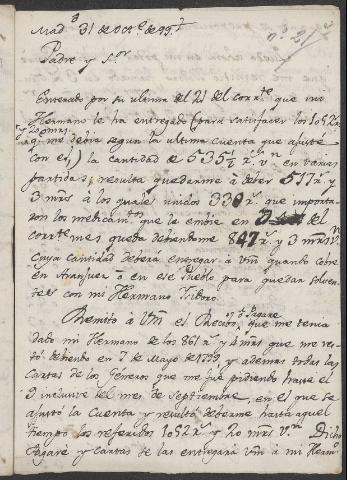 Mad.d 31 de Oct.e de 99.
n.o 21
Padre y S.or
Enterado por su ultima del 21 del corr.te que mi
Hermano le ha entregado (para satisfacer los 1052 r.
y 20 mrs.
que me debia segun la ultima cuenta que ajusté
con el,) la cantidad de 535½ r.s v.n en varias
partidas; resulta quedarme á deber 517 r.s
3 mrs á los quales unidos 330 r.s que importa-
ron los medicam.tos que le embie en del
corr.te mes queda debiendome 847 r.s y 3 mrs v.n
Cuya cantidad deberá entregar á Vm quando cobre
en Aranjuez ó en ese Pueblo para quedar solven-
tes con mi Hermano Isidoro.
Remito á Vm el Recibo, y el Pagare que me tenia
dado mi Hermano de los 361 r.s y 4 mrs que me res-
tó debiendo en 7 de Mayo de 1799 y ademas todas las
Cartas de los Géneros que me fue pidiendo hasta el
9 inclusive del mes de Septiembre, en el que se
ajustó la Cuenta y resultó deberme hasta aquel
tiempo los referidos 1052 r.s y 20 mrs v.n Dicho
Pagaré y Cartas de las entregará Vm á mi Herm.